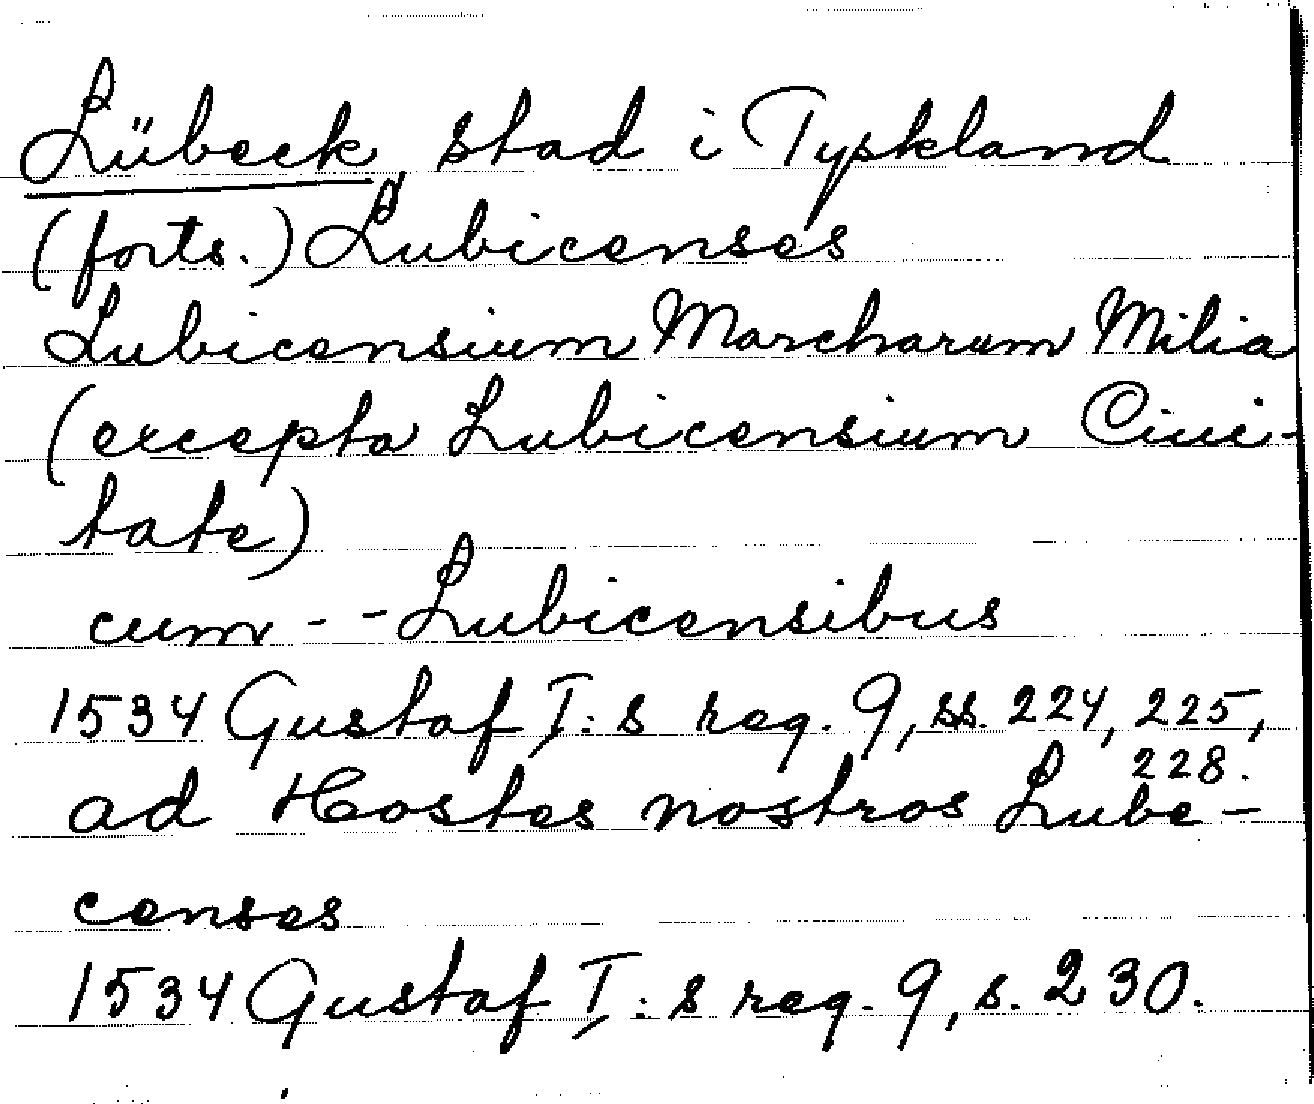 Lübeck stad i Tyskland
(forts.) Lubicenses
Lubicensium Marcharum Milia
(excepta Lubicensium Ciui-
tate)
cum - - Lubicensibus
1534 Gustaf I:s reg. 9, ss. 224, 225,
228.
ad Hostes nostros Lube-
censes
1534 Gustaf I:s reg. 9, s. 230.